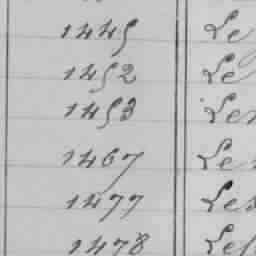 1445 Le
1452 Le
1453 Le
1467 Le
1477 Les
1478 Les